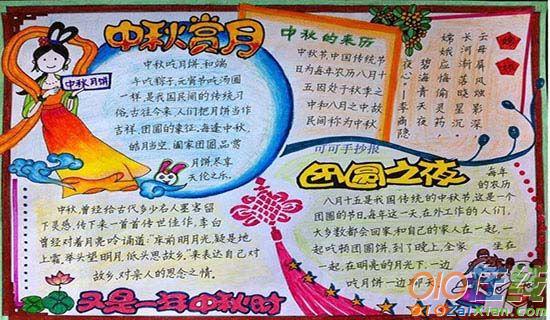 中秋赏月
中秋月饼
中秋吃月饼,和端
午吃粽子、元宵节吃汤圆
一样,是我国民间的传统习
俗。古往今来,人们把月饼当作
吉祥、团圆的象征。每逢中秋,
皓月当空,阖家团圆,品尝
月饼尽享
天伦之乐。
中秋的来历
中秋节,中国传统节
日,为每年农历八月十
五,因处于秋季之
中和八月之中,故
民间称为中秋
嫦娥
云母屏风烛影深
长河渐落晓星沉
嫦娥应悔偷灵药
碧海青天夜
夜心—李商隐
可可手抄报
团圆之夜
每年
的农历
八月十五是我国传统的中秋节,这是一个
团圆的节日。每年这一天,在外工作的人们,
大多数都会回家,和自己的家人在一起,一
起吃顿团圆饼,到了晚上,全家 坐在
一起,在明亮的月光下,一边
吃月饼一边聊天
中秋,曾经给古代多少名人墨客留
下灵感,传下来一首首传世佳作。李白
曾经对着月亮吟诵道:“床前明月光,疑是地
上霜。举头望明月,低头思故乡。”来表达自己对
故乡、对亲人的思念之情。
又是一年中秋时
在线